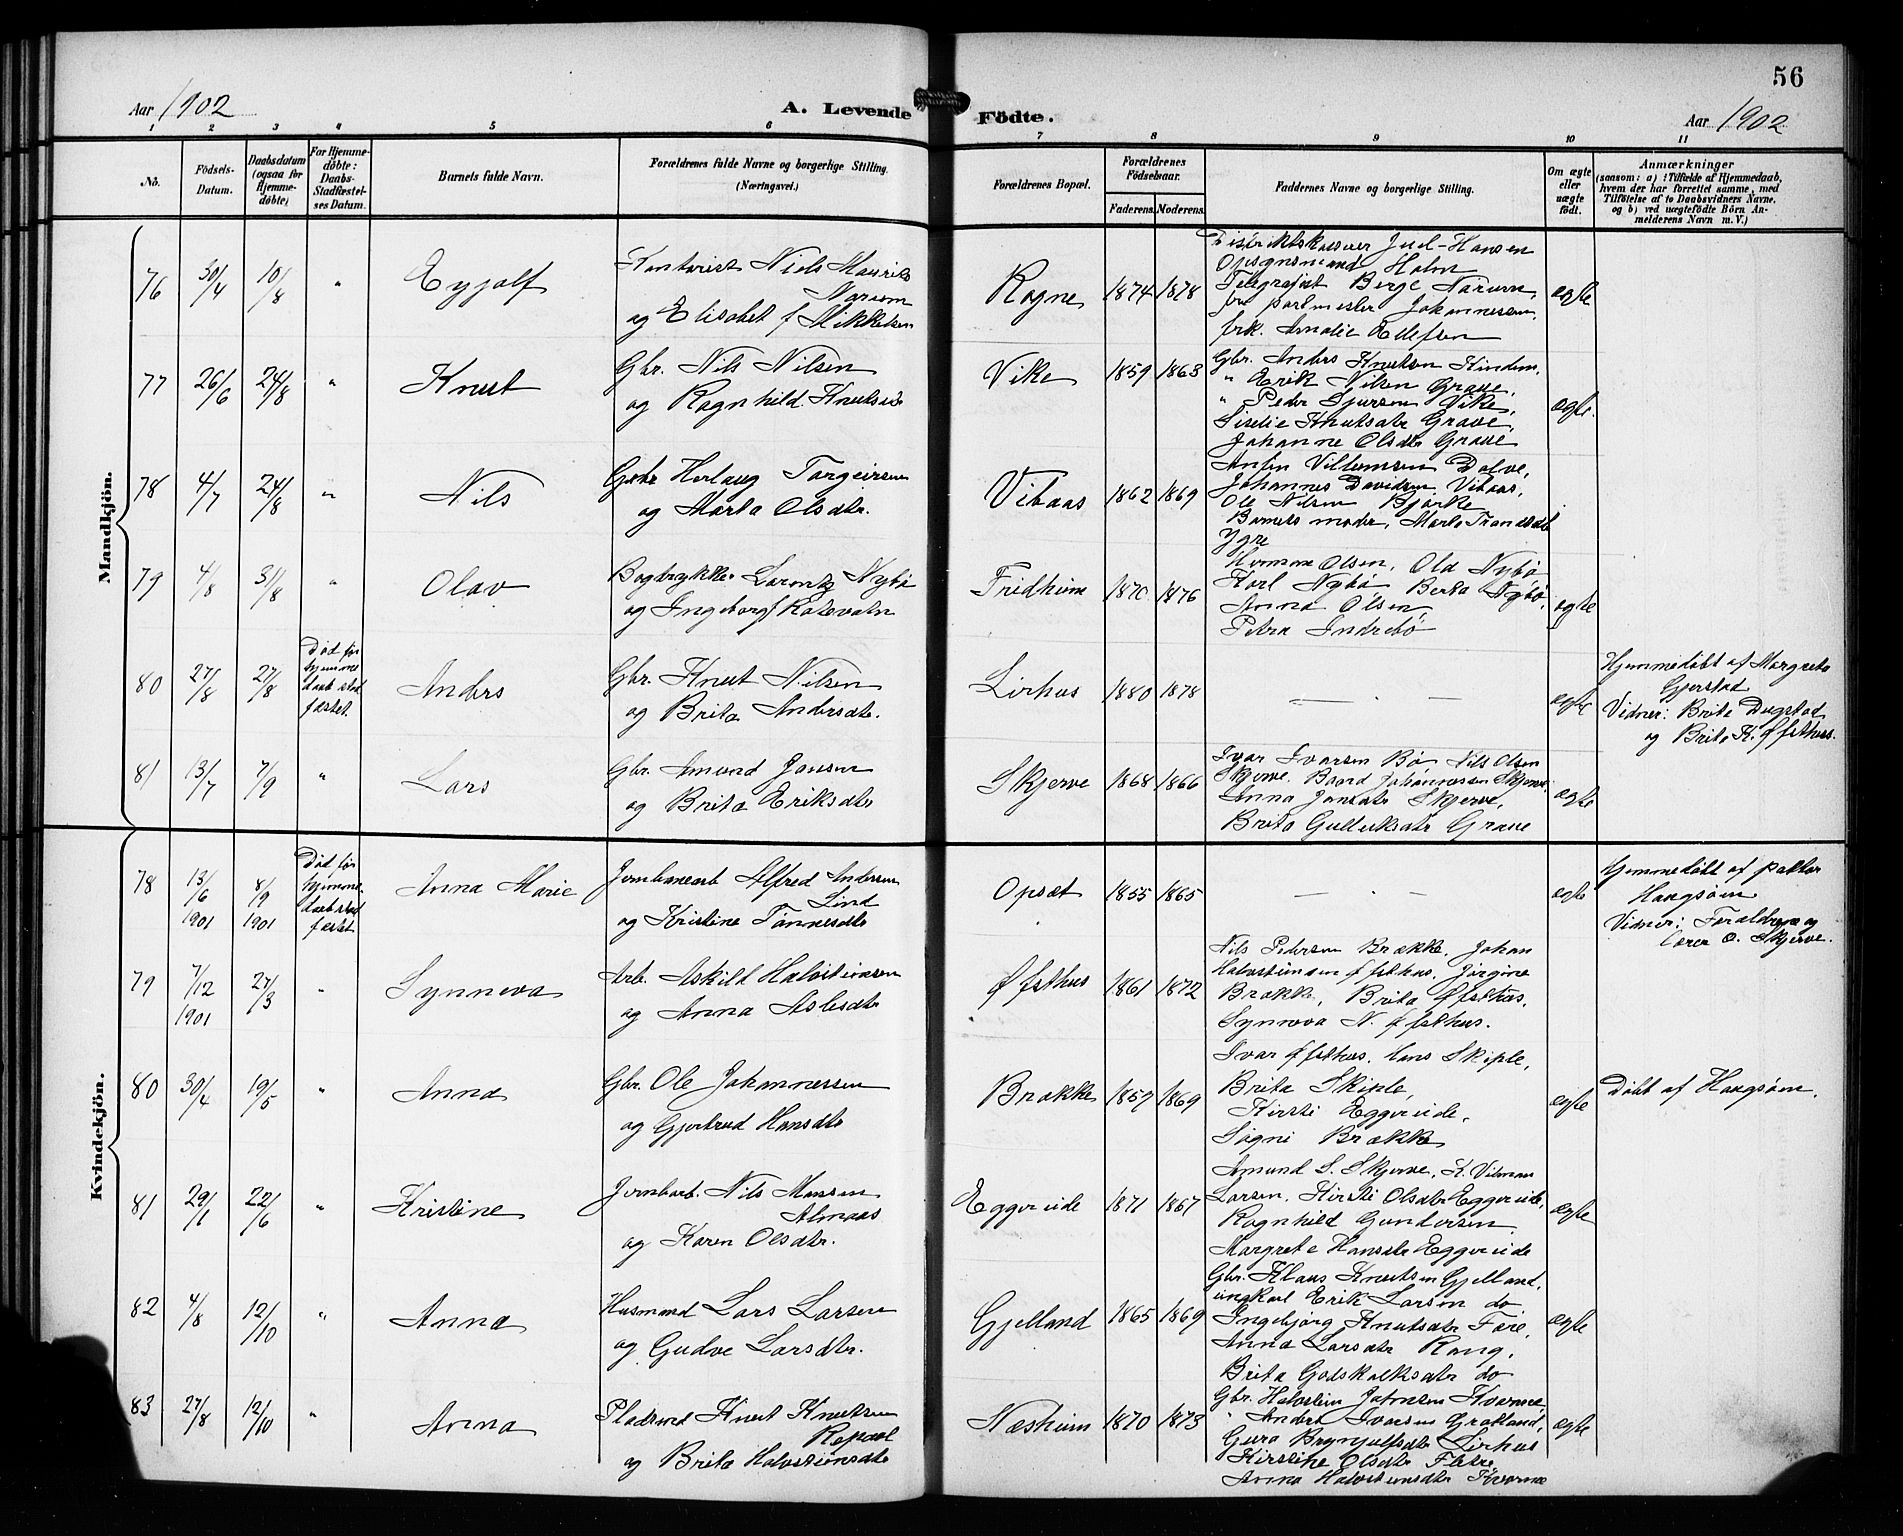 56
Aar 1902
A. Levende Födte.
Aar 1902
1 2 3 4 5 6 7 8 9 10 11
No.
Födsels-Datum.
Daabsdatum (ogsaa for Hjemme-döbte)
For Hjemme-döbte: Daabs-Stadfæstel-ses Datum.
Barnets fulde Navn.
Forældrenes fulde Navne og borgerlige Stilling.
(Næringsvei.)
Forældrenes Bopæl.
Forældrenes Födselsaar.
Faderens. Moderens.
Faddernes Navne og borgerlige Stilling.
Om ægte eller uægte födt.
Anmærkninger
(saasom: a) i Tilfælde af Hjemmedaab, hvem der har forrettet samme, med Tilföielse af to Daabsvidners Navne, og b) ved uægtefödte Börn An-melderens Navn m. V.)
Mandkjön.
76 30/4 10/8 "
Kontorist Niels Mauritz
og Elisabet f Mikkelsen
Rogne 1874 1878
Distriktskasserer Juel-Hansen
Opsynsmand Holm
Telegrafist Berge
fru postmester Johannessen,
frk. Amalie Ellefsen
ægte
77 26/6 24/8 " Knut
Gbr. Nils Nilsen
og Ragnhild Knutsd
Vike 1859 1863
Gbr. Anders Knutsen Kindem,
" Erik Nilsen Grave,
" Peder Sjursen Vike,
Knutsdtr Grave,
Johanne Olsdtr Grave
ægte.
78 4/7 24/8 " Nils
Torgeirsen
og Marta Olsdtr.
Vibaas 1862 1869
Anfin Villumsen Dolve,
Johannes Davidsen Vibaas,
Ole Nilsen Bjørke
Barnets moder, Marta
Ygre
79 4/8 31/8 " Olav
Bogtrykker Lorentz Nybø
og Ingeborg f
Fridheim 1870 1876
Olsen, Ola Nybø
Karl Nybø, Berta Nybø,
Anna Olsen,
Petra Indrebø
ægte
80 27/8 27/8
Död før
hjemme
daab stad
fæstet.
Anders
Gbr. Knut Nilsen
og Brita Andersdtr.
Lirhus 1880 1878
— - —
ægte
Hjemmedöbt af Margreta
Gjerstad
Vidner: Brita Dugstad
og Brita K. Øfsthus.
81 13/7 7/9 " Lars
Gbr. Amund Jonsen
og Brita Eriksdtr
Skjerve 1868 1866
Ivar Ivarsen Bø Nils Olsen
Skjerve. Baard Johannessen Skjerve
Anna Jonsdtr Skjerve,
Brita Gulleiksdtr Grave
ægte
Kvindekjön.
78 13/6 1901 8/9 1901
Död før
hjemme-
daab stad
fæstet
Anna Marie
Jernbanearb Alfred Andersen
Lind
og Kristine Tønnesdtr
Opsæt 1855 1865
— - —
ægte
Hjemmedöbt af pastor
Haugsøen
Vidner: Forældrene og
lærer O. Skjerve.
79 7/12 1901 27/3 " Synneva
Arb. Askild Halvsteinsen
og Anna Aslesdtr
Øfsthus 1861 1872
Nils Pedersen Brække, Johan
Halvsteinsen Øfsthus, Jørgine
Brække, Brita Øfsthus,
Synneva N. Øfsthus.
80 30/4 19/5 " Anna
Gbr. Ole Johannessen
og Gjertrud Hansdtr
Brække 1859 1869
Ivar Øfsthus, Hans Skiple,
Brita Skiple,
Kirsti Eggereide,
Brække
ægte
Döbt af Haugsøen.
81 29/1 22/6 " Kristine
Jernbarb. Nils Monsen
Almaas
og Karen Olsdtr.
Eggereide 1871 1867
Amund S. Skjerve, K. Vilman
Larsen, Kirsti Olsdtr Eggereide,
Ragnhild Gundersen
Margrete Hansdtr Eggereide
ægte
82 4/8 12/10 " Anna
Husmand Lars Larsen
og Gudve Larsdtr.
Gjelland 1865 1869
Gbr. Klaus Knutsen Gjelland,
ungkarl Erik Larsen do
Ingebjørg Knutsdtr
Anna Larsdtr Rong,
Brita Godskalksdtr do
ægte
83 27/8 12/10 " Anna
Pladsmd Knut Knutsen
Repaal
og Brita Halvsteinsdtr
Næsheim 1870 1873
Gbr. Halvstein Johnsen Kvarme,
" Anders Ivarsen
Guro Brynjulfsdtr Lirhus
Kirstine Olsdtr
Anna Halvsteinsdtr Kvarme
ægte